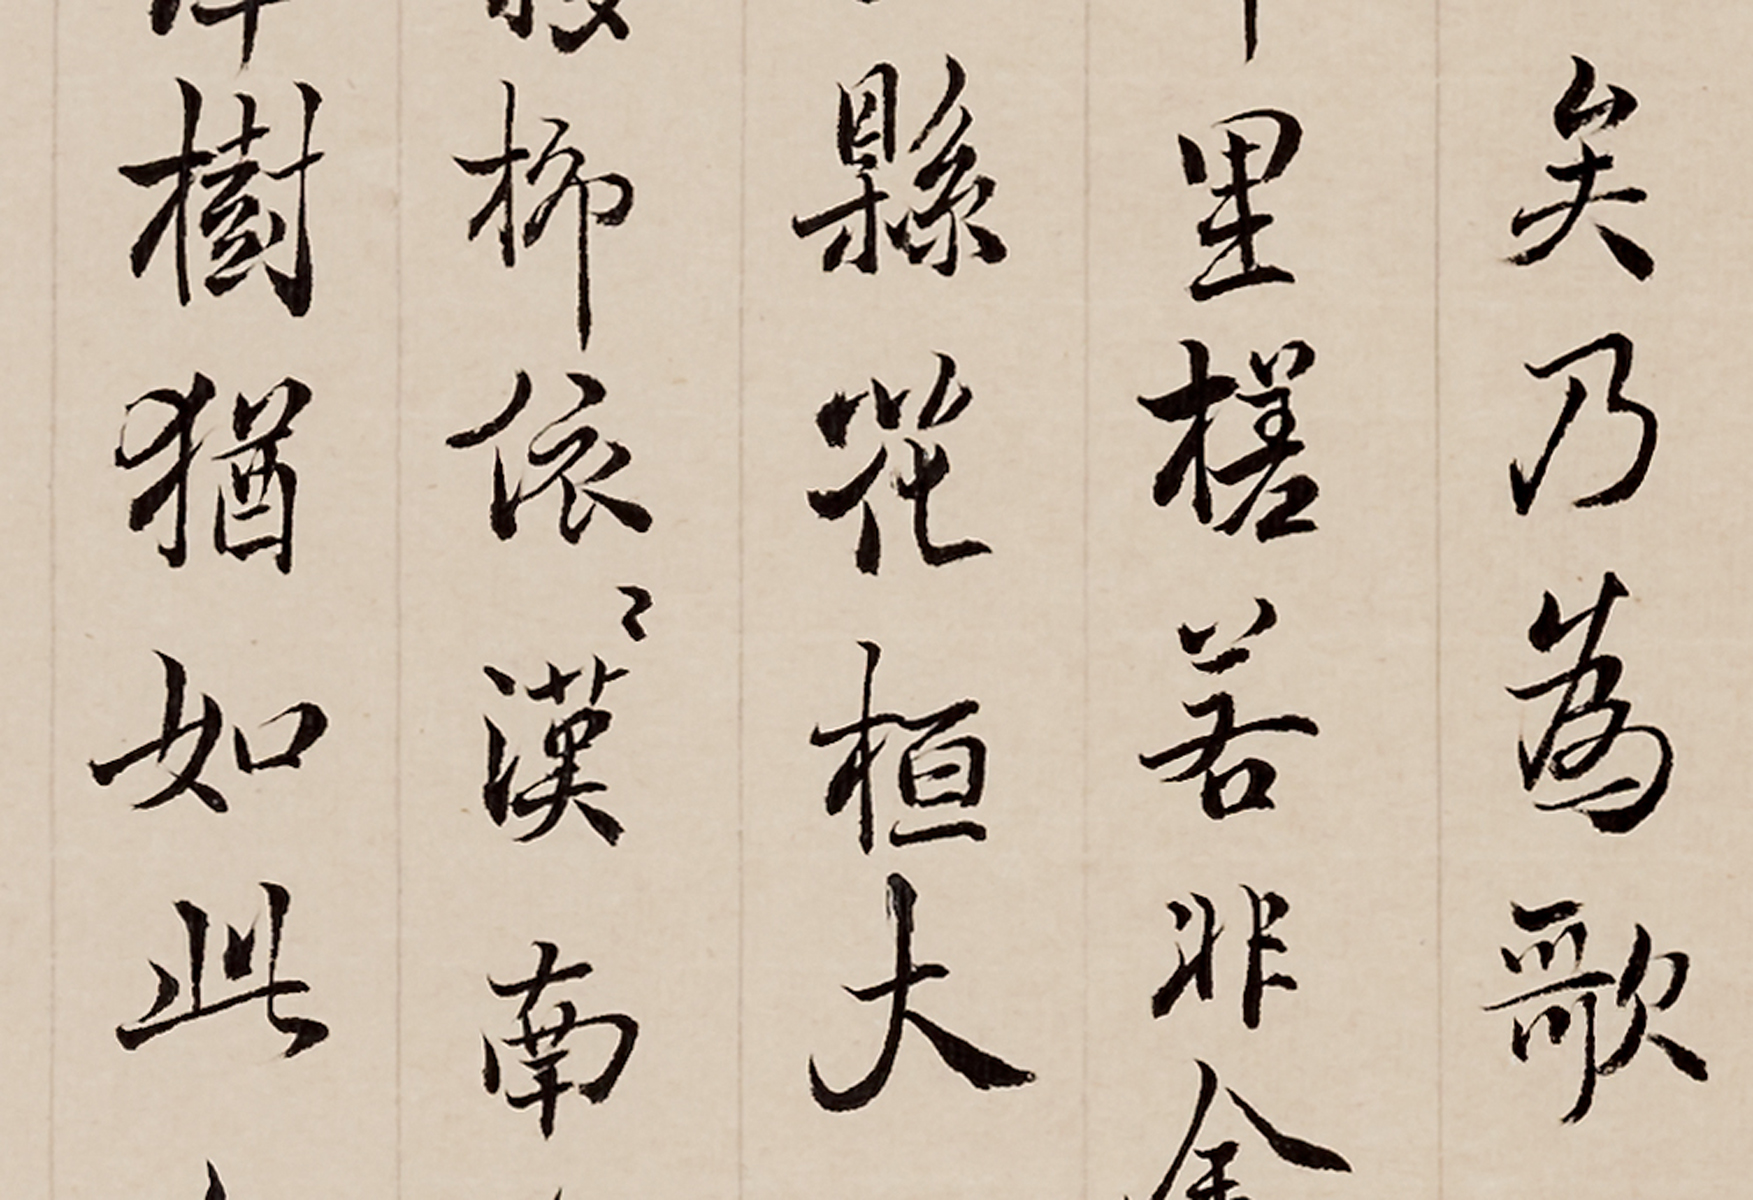 矣乃為歌
里槎若非金
縣花桓大
柳依〻漢南
樹猶如此